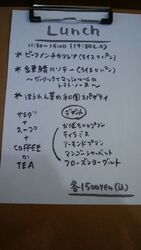 Lunch
11:30~15:00 (14:30L.O)
* ビーフメンチカツレツ (ライス or パン)
* 金華鯖のソテー (ライス or パン)
~ガーリックとマッシュルームの
トマトソース~
* ほうれん草の和風スパゲティ
サラダ
+
スープ
+
COFFEE
or
TEA
デザート
かぼちゃプリン
ティラミス
アーモンドプリン
マンゴーシャーベット
フローズンヨーグルト
各1500yen(込)